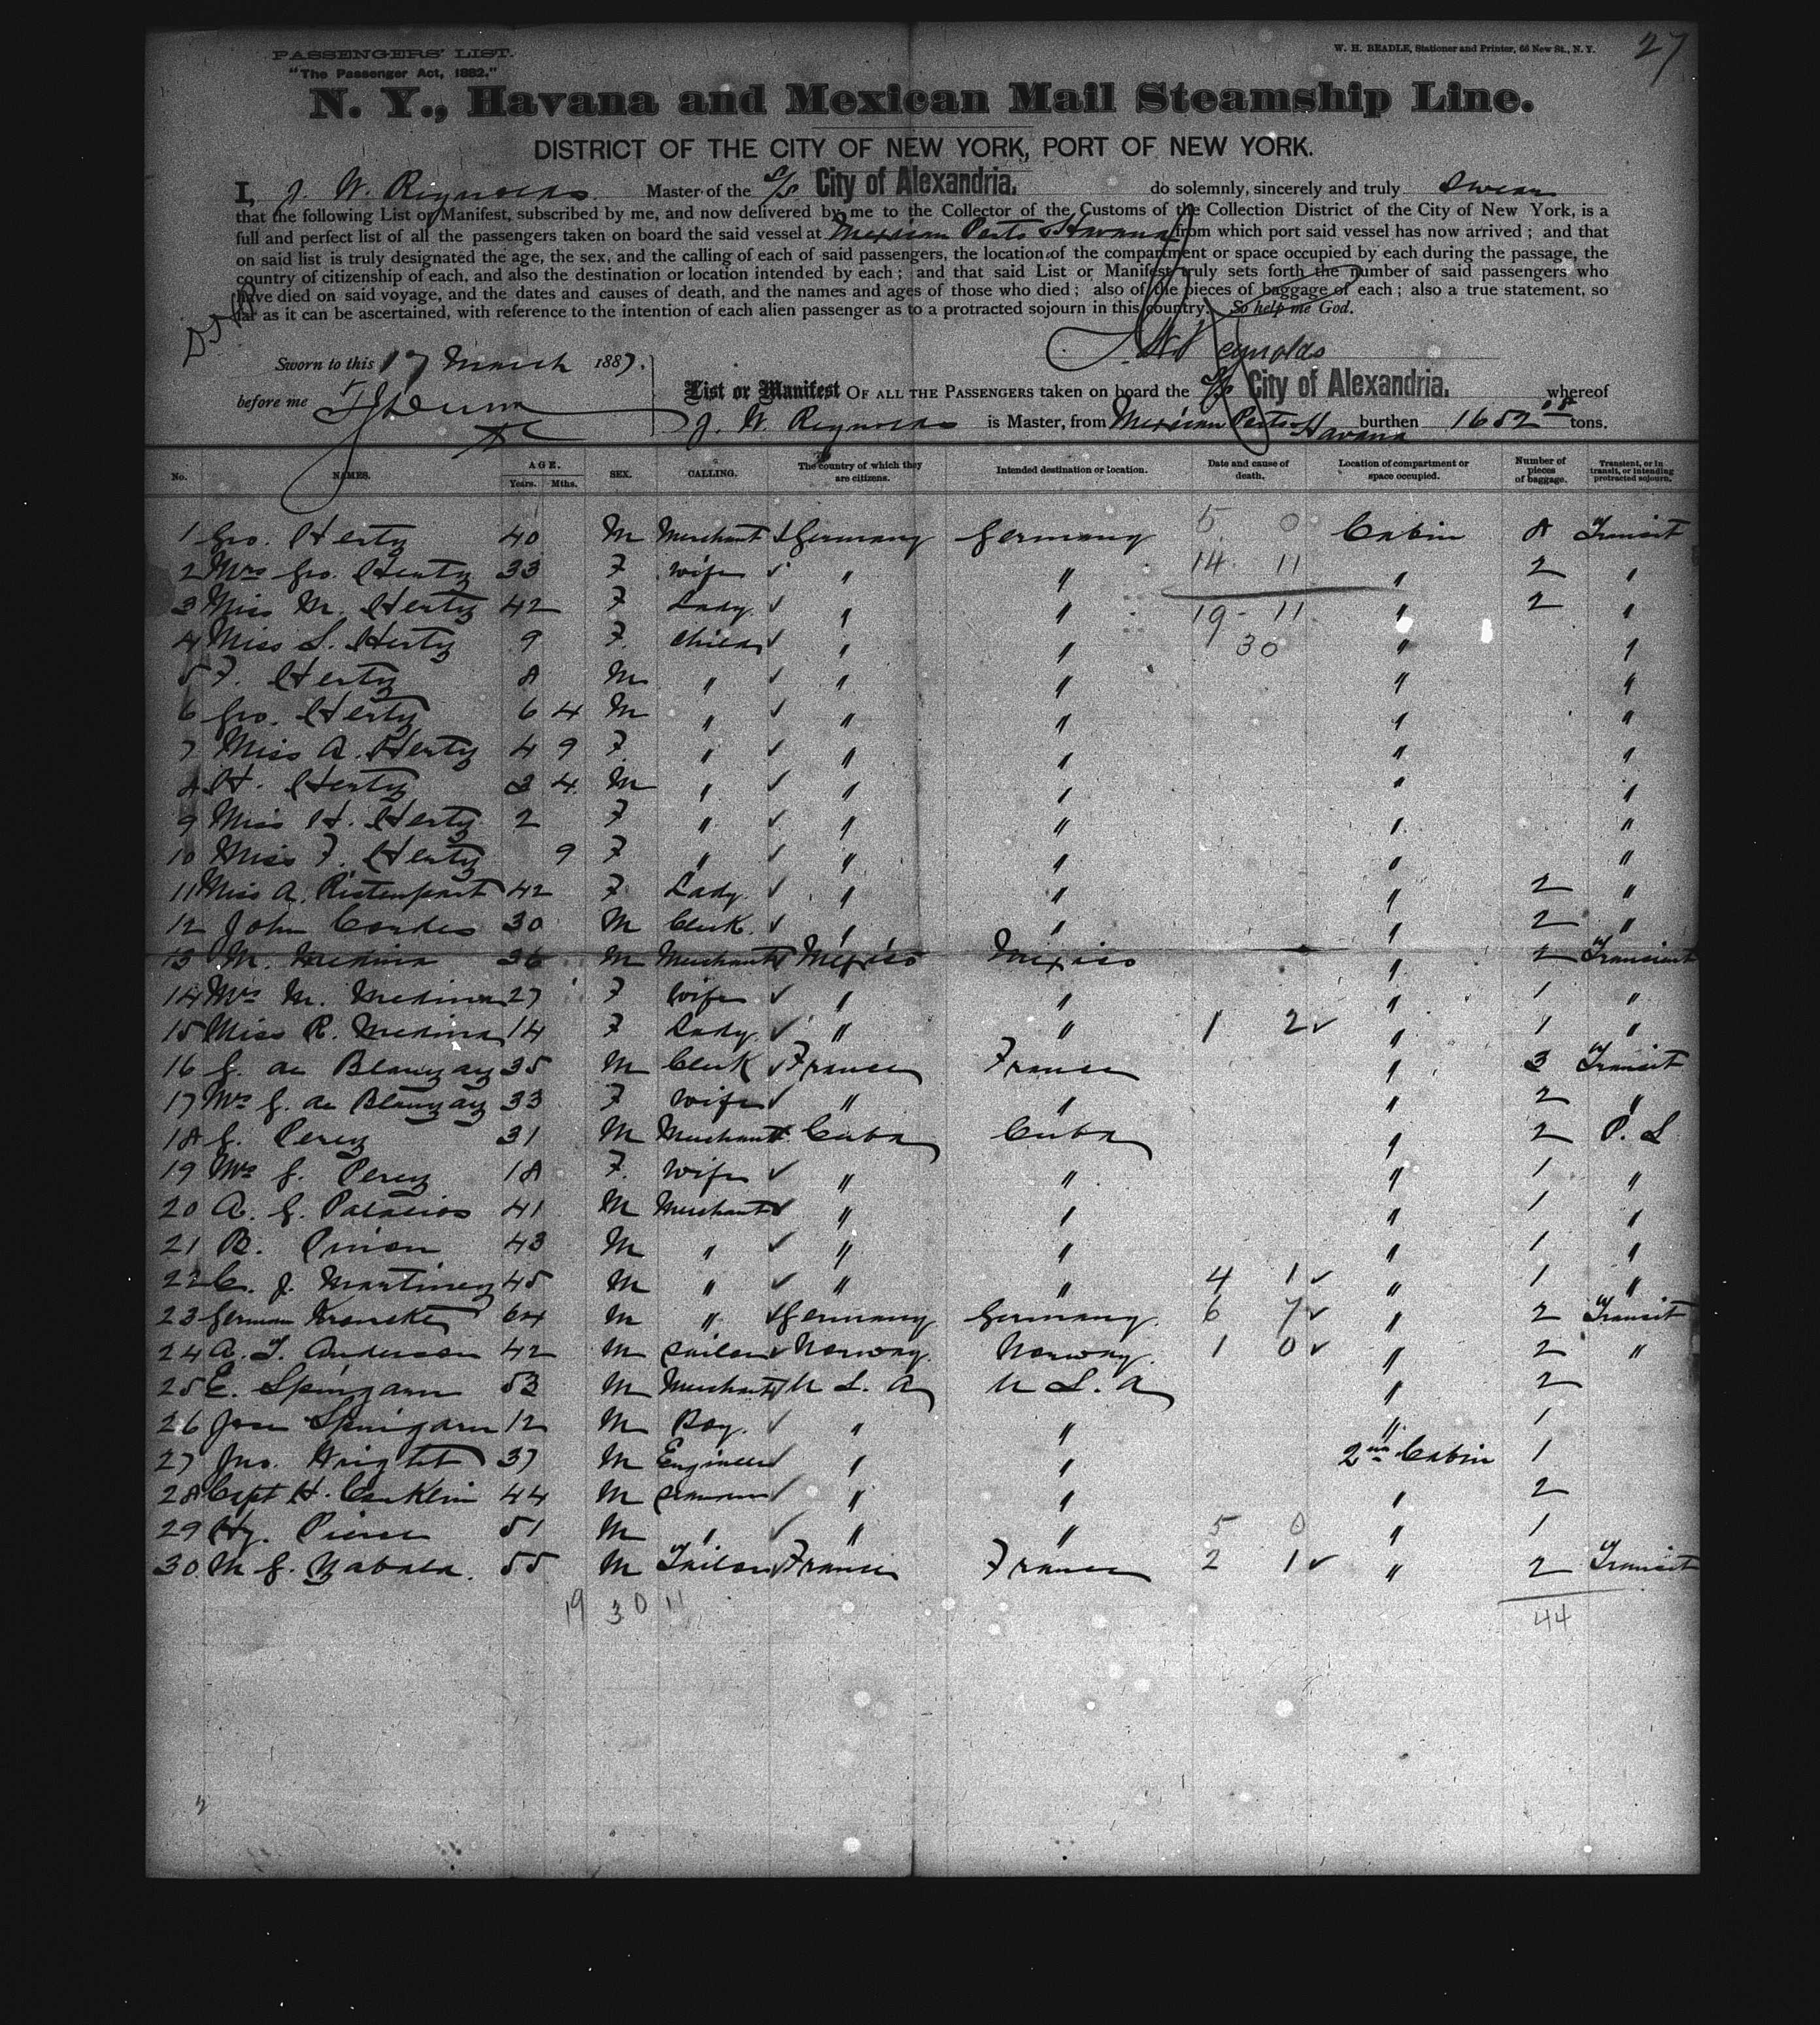 27
PASSENGERS' LIST.
W. H. BEADLE, Stationer and Printer, 66 New St., N. Y.
"The Passenger Act, 1882."
N. Y., Havana and Mexican Mail Steamship Line.
DISTRICT OF THE CITY OF NEW YORK, PORT OF NEW YORK.
I, J. W. Reynolds. Master of the S/S City of Alexandria. do solemnly, sincerely and truly swear
that the following List or Manifest, subscribed by me, and now delivered by me to the Collector of the Customs of the Collection District of the City of New York, is a
full and perfect list of all the passengers taken on board the said vessel at Mexican Ports & Havana from which port said vessel has now arrived; and that
on said list is truly designated the age, the sex, and the calling of each of said passengers, the location of the compartment or space occupied by each during the passage, the
country of citizenship of each, and also the destination or location intended by each; and that said List or Manifest truly sets forth the number of said passengers who
have died on said voyage, and the dates and causes of death, and the names and ages of those who died; also of the pieces of baggage of each; also a true statement, so
far as it can be ascertained, with reference to the intention of each alien passenger as to a protracted sojourn in this country. So help me God.
J. W. Reynolds
Sworn to this 17 March 1887.
before me
List or Manifest OF ALL THE PASSENGERS taken on board the S/S City of Alexandria. whereof
J. W. Reynolds is Master, from Mexican Ports & Havana burthen 1652 tons.
No. NAMES. AGE. Years. Mths. SEX. CALLING. The country of which they are citizens. Intended destination or location. Date and cause of death. Location of compartment or space occupied. Number of pieces of baggage. Transient, or in transit, or intending protracted sojourn.
1 Geo. Hertz 40 M Merchant ✓ Germany Germany 5 0 Cabin 8 Transit
2 Mrs Geo. Hertz 33 F wife ✓ " " 14 11 " 2 "
3 Miss M. Hertz 42 F Lady ✓ " " 19 - 11 " 2 "
4 Miss L. Hertz 9 F. child ✓ " " 30 " "
5 F. Hertz 8 M " ✓ " " " "
6 Geo. Hertz 6 4 M " ✓ " " " "
7 Miss A. Hertz 4 9 F. " ✓ " " " "
8 H. Hertz 3 4 M " ✓ " " " "
9 Miss H. Hertz 2 F " ✓ " " " "
10 Miss F. Hertz 9 F " ✓ " " " "
11 Miss A. Ristenpart 42 F Lady ✓ " " " 2 "
12 John Cordes 30 M Clerk. ✓ " " " 2 "
13 M. Medina 36 M Merchant ✓ Mexico Mexico " 2 Transient
14 Mrs M. Medina 27 F wife ✓ " " " 1 "
15 Miss R. Medina 14 F Lady ✓ " " 1 2 ✓ " 1 "
16 G. de 35 M Clerk ✓ France France " 3 Transit
17 Mrs G. de 33 F wife ✓ " " " 2 "
18 G. Perez 31 M Merchant ✓ Cuba Cuba " 2 P. S
19 Mrs G. Perez 18 F. wife ✓ " " " 1 "
20 A. G. Palacios 41 M Merchant ✓ " " " 1 "
21 B. 43 M " ✓ " " " 1 "
22 C. J. Martinez 45 M " ✓ " " 4 1 ✓ " 1 "
23 German 64 M " ✓ Germany Germany. 6 7 ✓ " 2 Transit
24 A. T. Anderson 42 M sailor ✓ Norway. Norway. 1 0 ✓ " 2 "
25 E. Spingarn 53 M Merchant ✓ U S. A U S. A " 2
26 Spingarn 12 M Boy. ✓ " " " 1
27 Jno. Wright 37 M Engineer ✓ " " 2nd Cabin 1
28 Capt H. Conklin 44 M seaman ✓ " " " 2
29 Hy. Pierce 51 M " ✓ " " 5 0 " 1
30 M G. Zabala. 55 M Tailor ✓ France France 2 1 ✓ " 2 Transit
19 30 11 44